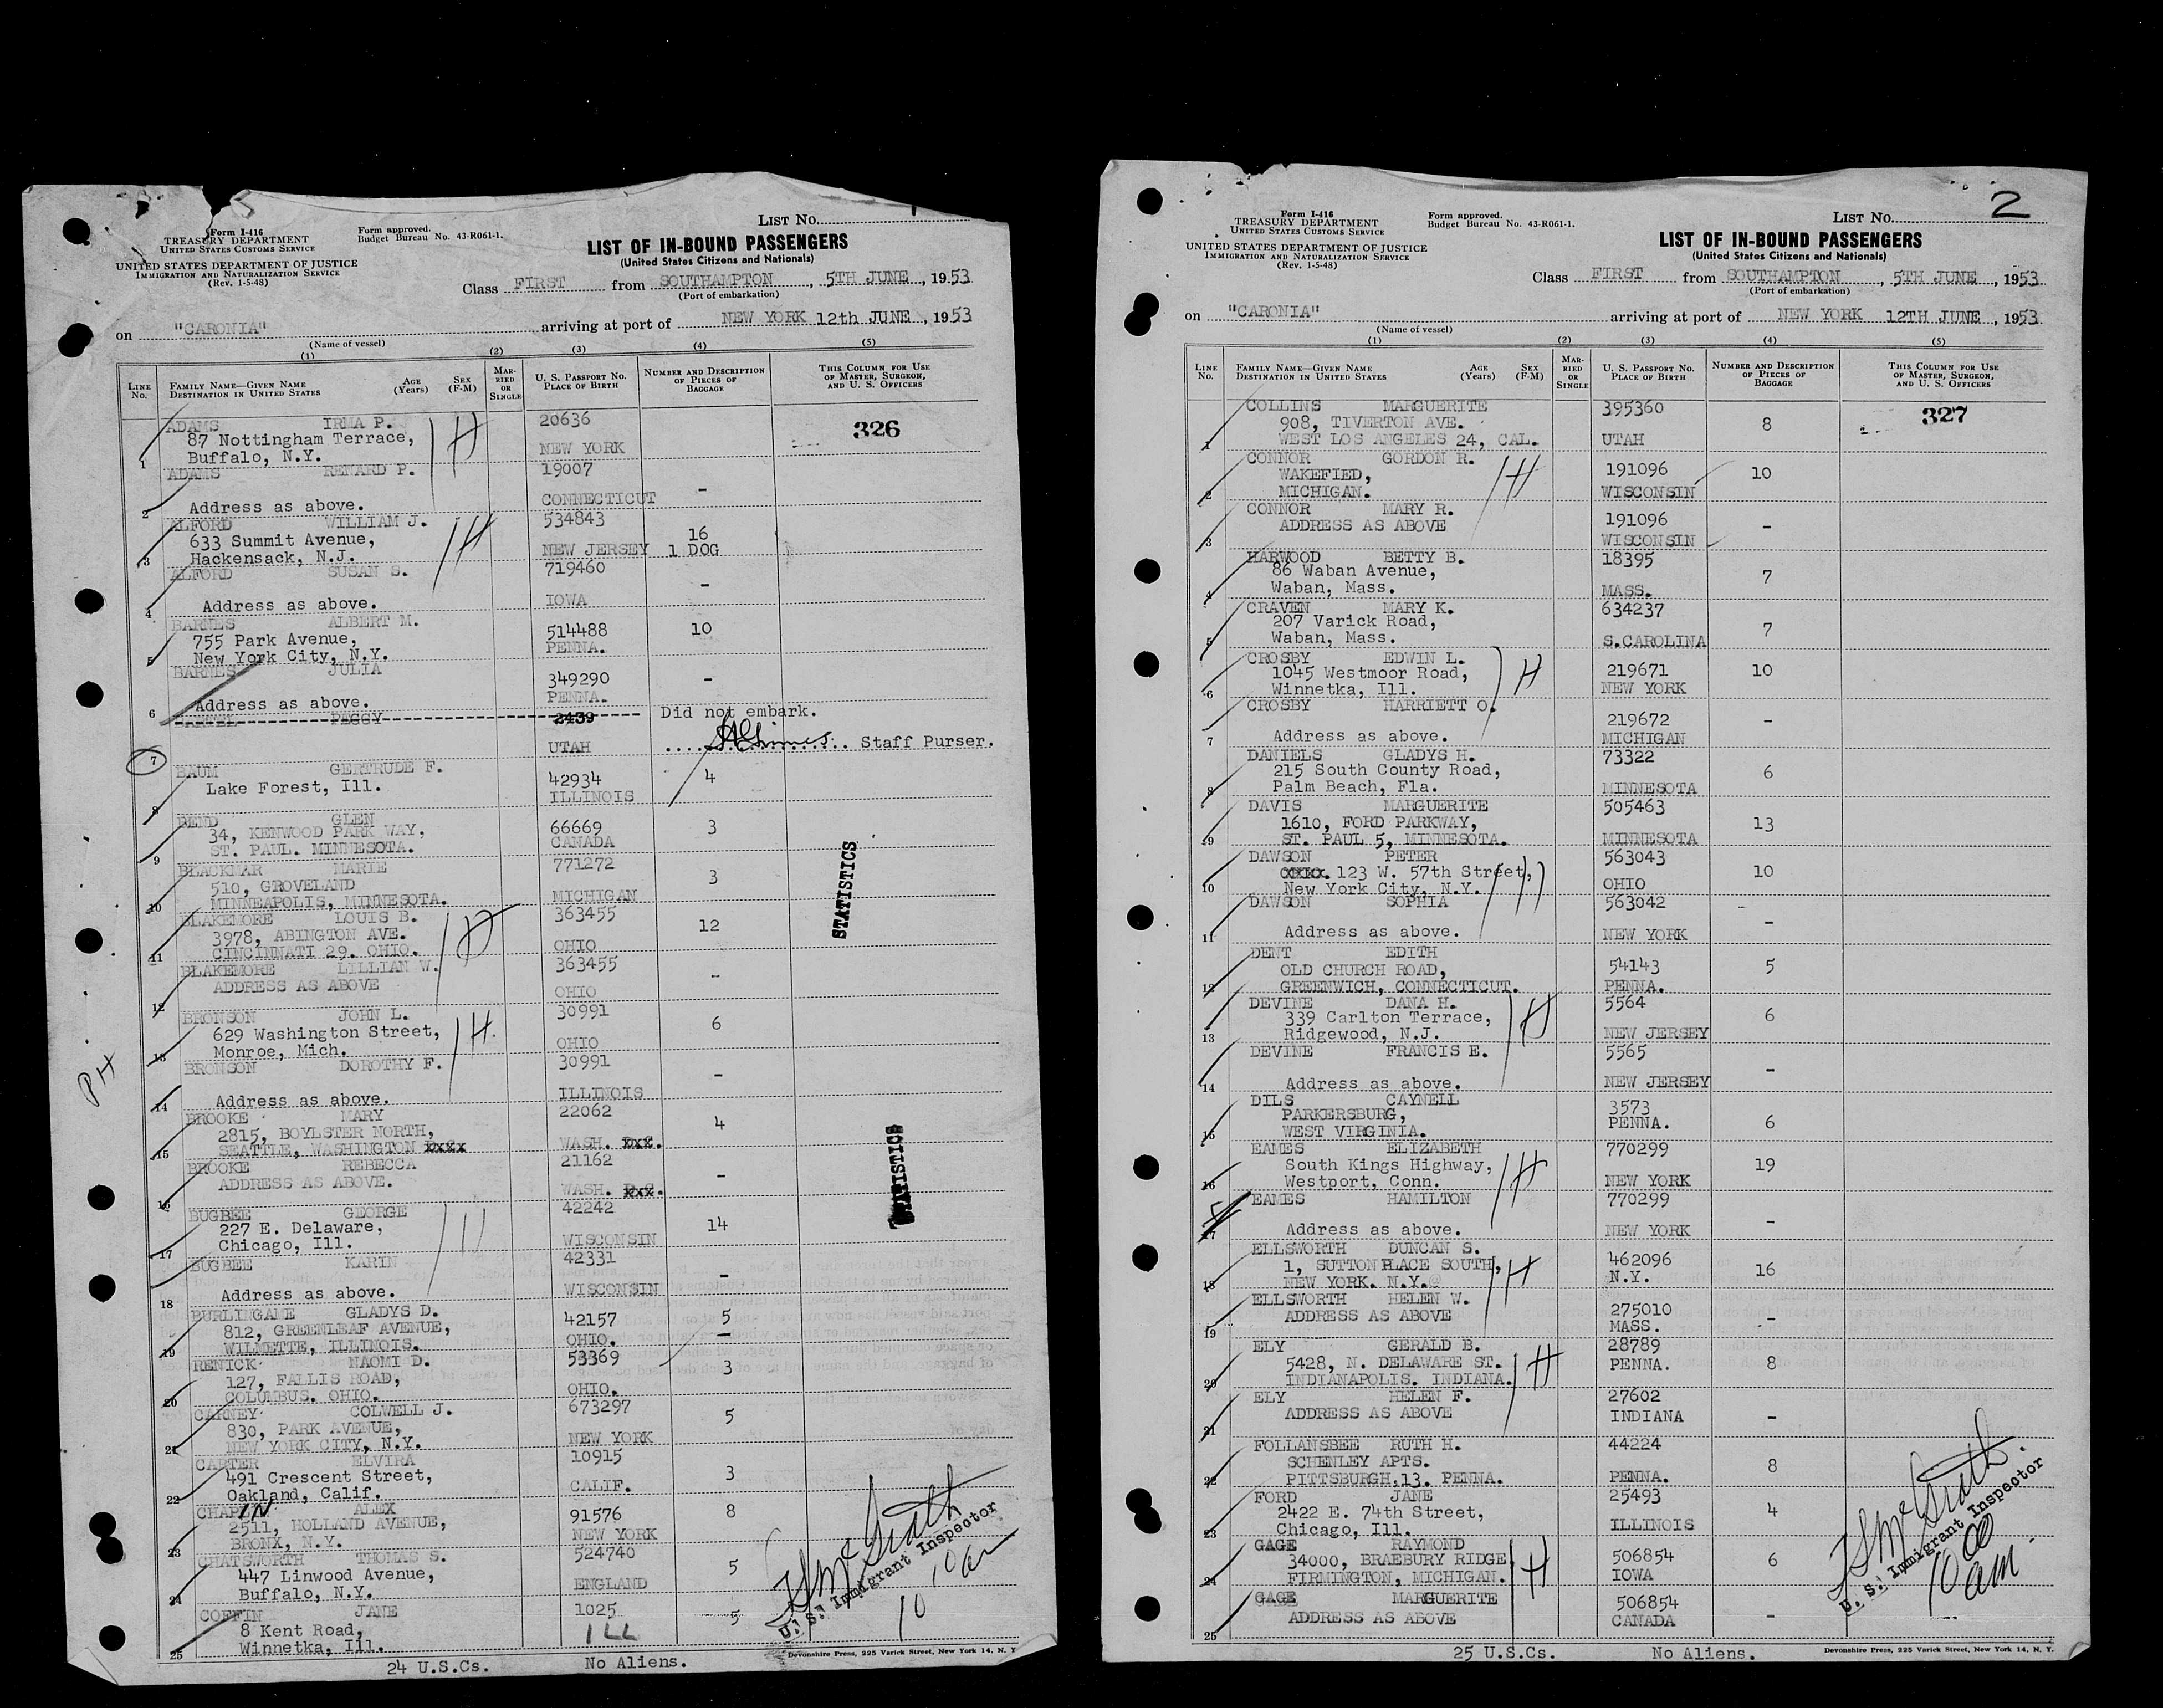 LIST No. 1
Form I-416
TREASURY DEPARTMENT
UNITED STATES CUSTOMS SERVICE
Form approved.
Budget Bureau No. 43-R061-1.
UNITED STATES DEPARTMENT OF JUSTICE
IMMIGRATION AND NATURALIZATION SERVICE
(Rev. 1-5-48)
LIST OF IN-BOUND PASSENGERS
(United States Citizens and Nationals)
Class FIRST from SOUTHAMPTON, 5TH JUNE, 1953
(Port of embarkation)
on "CARONIA" arriving at port of NEW YORK 12th JUNE, 1953
(Name of vessel)
(1) (2) (3) (4) (5)
LINE No. FAMILY NAME—GIVEN NAME DESTINATION IN UNITED STATES AGE (Years) SEX (F-M) MARRIED OR SINGLE U. S. PASSPORT No. PLACE OF BIRTH NUMBER AND DESCRIPTION OF PIECES OF BAGGAGE THIS COLUMN FOR USE OF MASTER, SURGEON, AND U. S. OFFICERS
ADAMS IRMA P. 20636 326
87 Nottingham Terrace,
1 Buffalo, N.Y. NEW YORK
ADAMS RENARD P. 19007 -
2 Address as above. CONNECTICUT
ALFORD WILLIAM J. 534843
633 Summit Avenue, 16
3 Hackensack, N.J. NEW JERSEY 1 DOG
ALFORD SUSAN S. 719460 -
4 Address as above. IOWA
BARNES ALBERT M. 514488 10
755 Park Avenue, PENNA.
5 New York City, N.Y.
BARNES JULIA 349290 -
6 Address as above. PENNA.
PEGGY 2439 Did not embark.
7 UTAH Staff Purser.
BAUM GERTRUDE F. 42934 4
8 Lake Forest, Ill. ILLINOIS
BEND GLEN 66669 3
34, KENWOOD PARK WAY, CANADA
9 ST. PAUL. MINNESOTA.
BLACKMAR MARIE 771272 3
510, GROVELAND
10 MINNEAPOLIS, MINNESOTA. MICHIGAN
BLAKEMORE LOUIS B. 363455 12
3978, ABINGTON AVE.
11 CINCINNATI 29. OHIO. OHIO
BLAKEMORE LILLIAN W. 363455 -
12 ADDRESS AS ABOVE OHIO
BRONSON JOHN L. 30991 6
629 Washington Street,
13 Monroe, Mich. OHIO
BRONSON DOROTHY F. 30991 -
14 Address as above. ILLINOIS
BROOKE MARY 22062 4
2815, BOYLSTER NORTH,
15 SEATTLE, WASHINGTON WASH.
BROOKE REBECCA 21162 -
16 ADDRESS AS ABOVE. WASH.
BUGBEE GEORGE 42242 14
227 E. Delaware,
17 Chicago, Ill. WISCONSIN
BUGBEE KARIN 42331 -
18 Address as above. WISCONSIN
BURLINGAME GLADYS D. 42157 5
812, GREENLEAF AVENUE, -
19 WILMETTE, ILLINOIS. OHIO.
RENICK NAOMI D. 53369 3
127, FALLIS ROAD,
20 COLUMBUS. OHIO. OHIO.
CARNEY COLWELL J. 673297 5
830, PARK AVENUE,
21 NEW YORK CITY, N.Y. NEW YORK
CARTER ELVIRA 10915 3
491 Crescent Street,
22 Oakland, Calif. CALIF.
CHAPIN ALEX 91576 8
2511, HOLLAND AVENUE,
23 BRONX, N.Y. NEW YORK
CHATSWORTH THOMAS S. 524740 5
447 Linwood Avenue,
24 Buffalo, N.Y. ENGLAND
COFFIN JANE 1025 5
8 Kent Road,
25 Winnetka, Ill. ILL
STATISTICS
STATISTICS
PH
U. S. Immigrant Inspector
10 10 am
Devonshire Press, 225 Varick Street, New York 14, N. Y.
24 U.S.Cs. No Aliens.
LIST No. 2
Form I-416
TREASURY DEPARTMENT
UNITED STATES CUSTOMS SERVICE
Form approved.
Budget Bureau No. 43-R061-1.
UNITED STATES DEPARTMENT OF JUSTICE
IMMIGRATION AND NATURALIZATION SERVICE
(Rev. 1-5-48)
LIST OF IN-BOUND PASSENGERS
(United States Citizens and Nationals)
Class FIRST from SOUTHAMPTON, 5TH JUNE, 1953
(Port of embarkation)
on "CARONIA" arriving at port of NEW YORK 12TH JUNE, 1953
(Name of vessel)
(1) (2) (3) (4) (5)
LINE No. FAMILY NAME—GIVEN NAME DESTINATION IN UNITED STATES AGE (Years) SEX (F-M) MARRIED OR SINGLE U. S. PASSPORT No. PLACE OF BIRTH NUMBER AND DESCRIPTION OF PIECES OF BAGGAGE THIS COLUMN FOR USE OF MASTER, SURGEON, AND U. S. OFFICERS
COLLINS MARGUERITE 395360 8 327
908, TIVERTON AVE.
1 WEST LOS ANGELES 24, CAL. UTAH
CONNOR GORDON R. 191096 10
WAKEFIED,
2 MICHIGAN. WISCONSIN
CONNOR MARY R. 191096 -
ADDRESS AS ABOVE
3 WISCONSIN
HARWOOD BETTY B. 18395 7
86 Waban Avenue,
4 Waban, Mass. MASS.
CRAVEN MARY K. 634237 7
207 Varick Road,
5 Waban, Mass. S.CAROLINA
CROSBY EDWIN L. 219671 10
1045 Westmoor Road,
6 Winnetka, Ill. NEW YORK
CROSBY HARRIETT O. 219672 -
7 Address as above. MICHIGAN
DANIELS GLADYS H. 73322 6
215 South County Road,
8 Palm Beach, Fla. MINNESOTA
DAVIS MARGUERITE 505463 13
1610, FORD PARKWAY,
9 ST. PAUL 5, MINNESOTA. MINNESOTA
DAWSON PETER 563043 10
123 W. 57th Street,
10 New York City, N.Y. OHIO
DAWSON SOPHIA 563042 -
11 Address as above. NEW YORK
DENT EDITH 54143 5
OLD CHURCH ROAD,
12 GREENWICH, CONNECTICUT. PENNA.
DEVINE DANA H. 5564 6
339 Carlton Terrace,
13 Ridgewood, N.J. NEW JERSEY
DEVINE FRANCIS E. 5565 -
14 Address as above. NEW JERSEY
DILS CAYNELL 3573 6
PARKERSBURG, PENNA.
15 WEST VIRGINIA.
EAMES ELIZABETH 770299 19
South Kings Highway,
16 Westport, Conn. NEW YORK
EAMES HAMILTON 770299 -
17 Address as above. NEW YORK
ELLSWORTH DUNCAN S. 462096 16
1, SUTTON PLACE SOUTH, N.Y.
18 NEW YORK. N.Y.
ELLSWORTH HELEN W. 275010 -
ADDRESS AS ABOVE MASS.
19
ELY GERALD B. 28789 8
5428, N. DELAWARE ST. PENNA.
20 INDIANAPOLIS. INDIANA.
ELY HELEN F. 27602 -
ADDRESS AS ABOVE INDIANA
21
FOLLANSBEE RUTH H. 44224 8
SCHENLEY APTS.
22 PITTSBURGH,13. PENNA. PENNA.
FORD JANE 25493 4
2422 E. 74th Street,
23 Chicago, Ill. ILLINOIS
GAGE RAYMOND 506854 6
34000, BRAEBURY RIDGE IOWA
24 FIRMINGTON, MICHIGAN.
GAGE MARGUERITE 506854 -
ADDRESS AS ABOVE CANADA
25
U. S. Immigrant Inspector
10 00 am.
Devonshire Press, 225 Varick Street, New York 14, N. Y.
25 U.S.Cs. No Aliens.